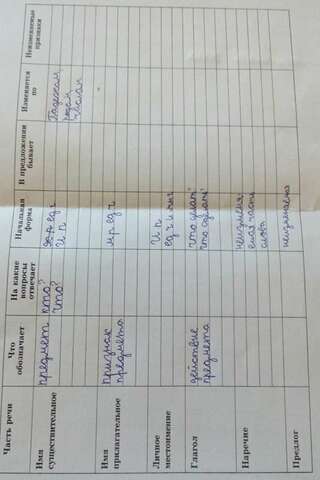 Часть речи
Что
обозначает
На какие
вопросы
отвечает
Начальная
форма
В предложении
бывает
Изменяется
по
Неизменяемые
признаки
Имя
существительное
предмет
кто?
что?
ж р ед ч
И п
Падежам
родам
числам
Имя
прилагательное
признак
предмета
м р ед ч
Личное
местоимение
И п
ед ч и мн ч
Глагол
действие
предмета
что делат
что сделат
Наречие
неизменя
емая часть
слова
Предлог
неизменяемо